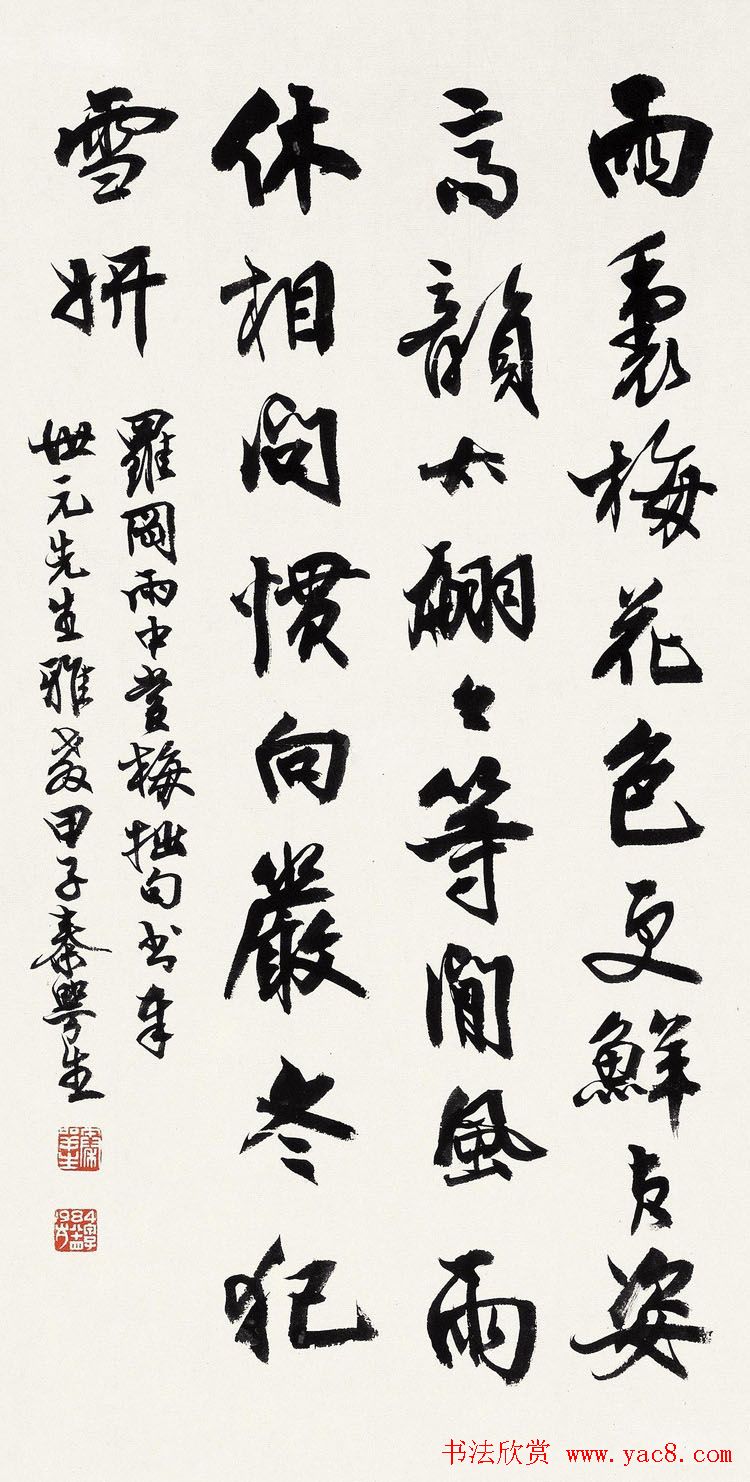 雨裏梅花色更鮮姿
高韻太翩々等閒風雨
休相問慣向嚴冬犯
雪妍
羅岡雨中賞梅拙句书奉
世元先生雅教甲子秦咢生
书法欣赏 www.yac8.com